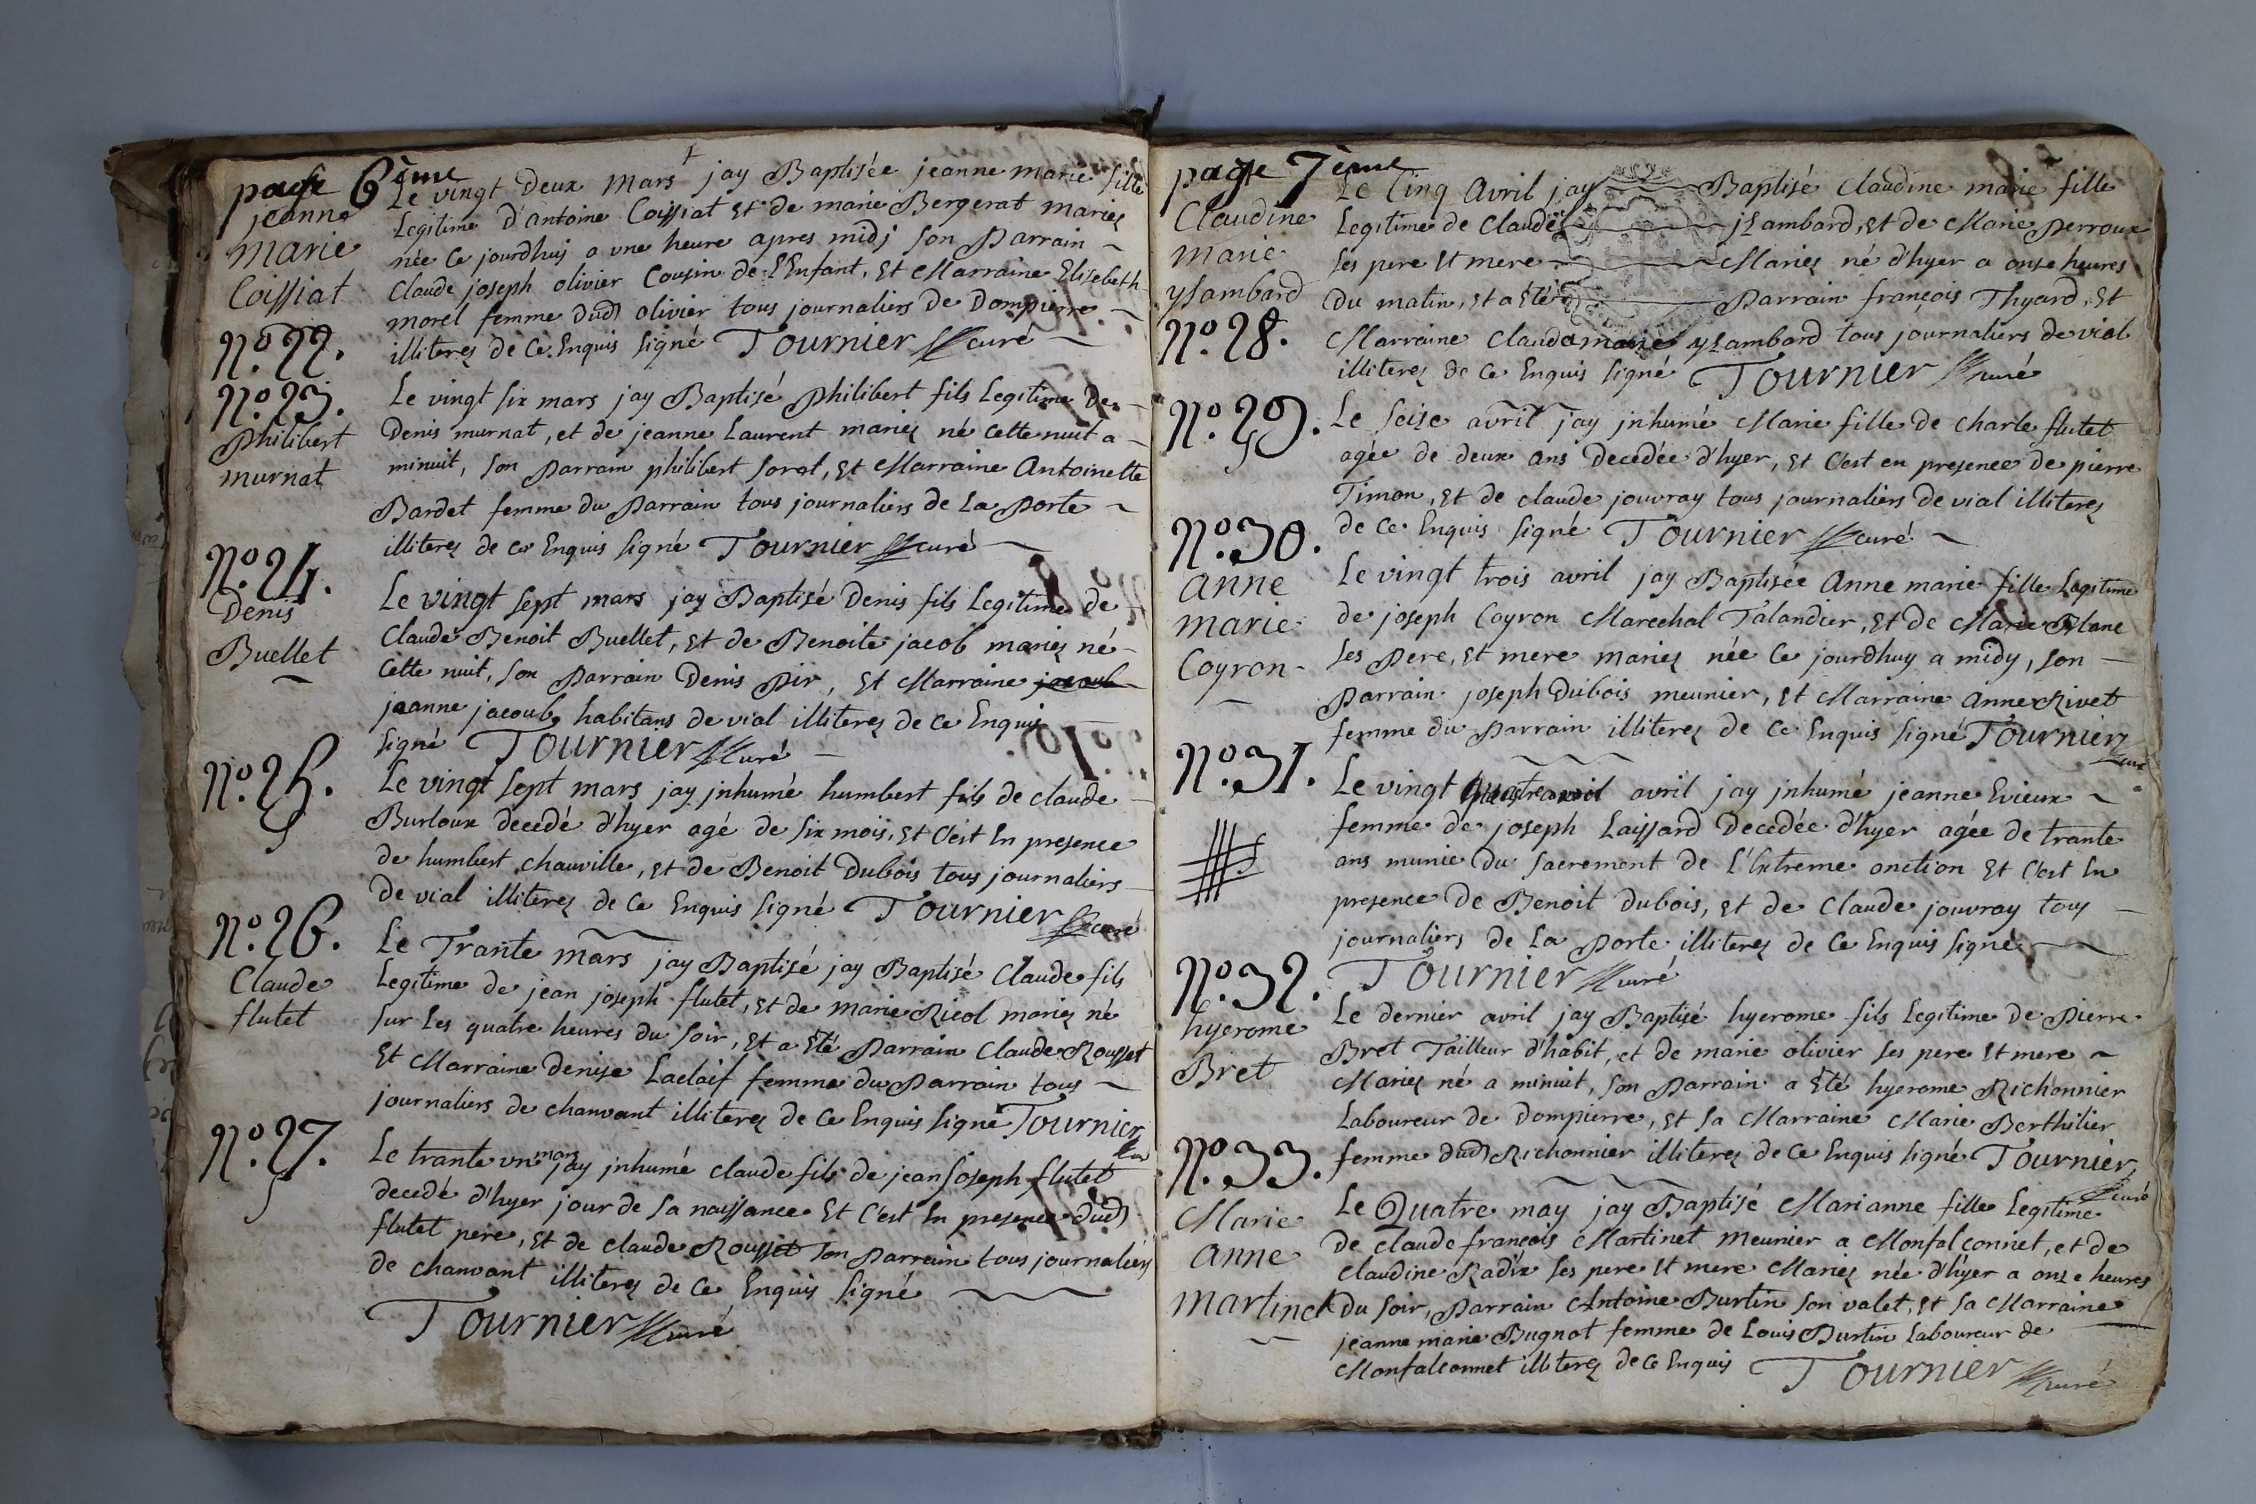 page 6ème
jeanne
marie
Coissiat
N.º 22.
Le vingt Deux mars jay Baptisée jeanne marie fille
Legitime d'antoine Coissiat Et de marie Bergerat mariez
née Ce jourdhuj a une heure apres midj son Parrain
Claude joseph olivier Cousin de l'Enfant, Et Marraine Elisebeth
morel femme dud olivier tous journaliers de Dompierre
illiterez de Ce Enquis signé Tournier curé
N.º 23.
Philibert
murnat
Le vingt six mars jay Baptisé Philibert fils Legitime De
Denis murnat, et de jeanne Laurent mariez né cette nuit a
minuit, son Parrain philibert sorel, Et Marraine Antoinette
Bardet femme du Parrain tous journaliers de La Porte
illiterez de Ce Enquis signé Tournier curé
N.º 24.
Denis
Buellet
Le vingt sept mars jay Baptisé Denis fils Legitime de
Claude Benoit Buellet, Et de Benoite jacob mariez né
Cette nuit, son Parrain Denis Pir, Et Marraine jacoub
jeanne jacoub, habitans de vial illiterez de Ce Enquis
signé Tournier curé
N.º 25.
Le vingt sept mars jay jnhumé humbert fils de claude
Burloux decedé d'hyer agé de six mois, Et C'est En presence
de humbert chauville, Et de Benoit Dubois tous journaliers
de vial illiterez de Ce Enquis signé Tournier curé
N.º 26.
Claude
flutet
Le Trante mars jay Baptisé jay Baptisé Claude fils
Legitime de jean joseph flutet, Et de marie Ricol mariez né
sur Les quatre heures du soir, Et a Eté Parrain Claude Rousset
Et Marraine Denise Laclaif femme du Parrain tous
journaliers de chanvant illiterez de Ce Enquis signé Tournier
curé
N.º 27.
Le trante un mars jay jnhumé claude fils de jean joseph flutet
decedé d'hyer jour de sa naissance Et C'est En presence dud
flutet pere, Et de claude Rousset son Parrain tous journaliers
de chanvant illiterez de Ce Enquis signé
Tournier curé
page 7ème
Claudine
Marie
ysambard
N.º 28.
Le Cinq Avril jay Baptisé Claudine marie fille
Legitime de Claude jsambard, Et de Marie Perroux
ses pere Et mere Mariez né d'hyer a onse heures
du matin, Et a Eté Parrain françois Thyard, Et
Marraine Claudamarie ysambard tous journaliers de vial
illiterez de Ce Enquis signé Tournier curé
N.º 29.
Le seise avril jay jnhumé Marie fille de charle flutet
agée de deux ans Decedée d'hyer, Et C'est en presence de pierre
Timon, Et de claude jouvray tous journaliers de vial illiterez
de Ce Enquis signé Tournier curé
N.º 30.
anne
marie
Coyron
Le vingt trois avril jay Baptisée Anne marie fille Legitime
de joseph Coyron Marechal Talandier, Et de Marie Blanc
ses Pere, Et mere mariez née Ce jourdhuy a midy, son
Parrain joseph Dubois meunier, Et Marraine Anne Rivet
femme du Parrain illiterez de Ce Enquis signé Tournier
curé
N.º 31.
Le vingt quatre avril jay jnhumé jeanne Evieux
femme de joseph Laissard Decedée d'hyer agée de trante
ans munie du sacrement de L'Extreme onction Et C'est En
presence De Benoit Dubois, Et de Claude jouvray tous
journaliers de La Porte illiterez de Ce Enquis signé
Tournier curé
N.º 32.
hyerome
Bret
Le dernier avril jay Baptisé hyerome fils Legitime De Pierre
Bret Tailleur d'habit, et de marie olivier ses pere Et mere
Mariez né a minuit, son Parrain a Eté hyerome Richonnier
Laboureur de Dompierre, Et sa Marraine Marie Berthilier
femme dud Richonnier illiterez de Ce Enquis signé Tournier
curé
N.º 33.
Marie
anne
martinet
Le Quatre may jay Baptisé Marianne fille Legitime
De claude françois Martinet meunier a Monfalconnet, et de
Claudine Radix ses pere Et mere Mariez née d'hyer a onze heures
du soir, Parrain Antoine Burtin son valet, Et sa Marraine
jeanne marie Bugnot femme de Louis Burtin Laboureur de
Monfalconnet illiterez de Ce Enquis Tournier curé